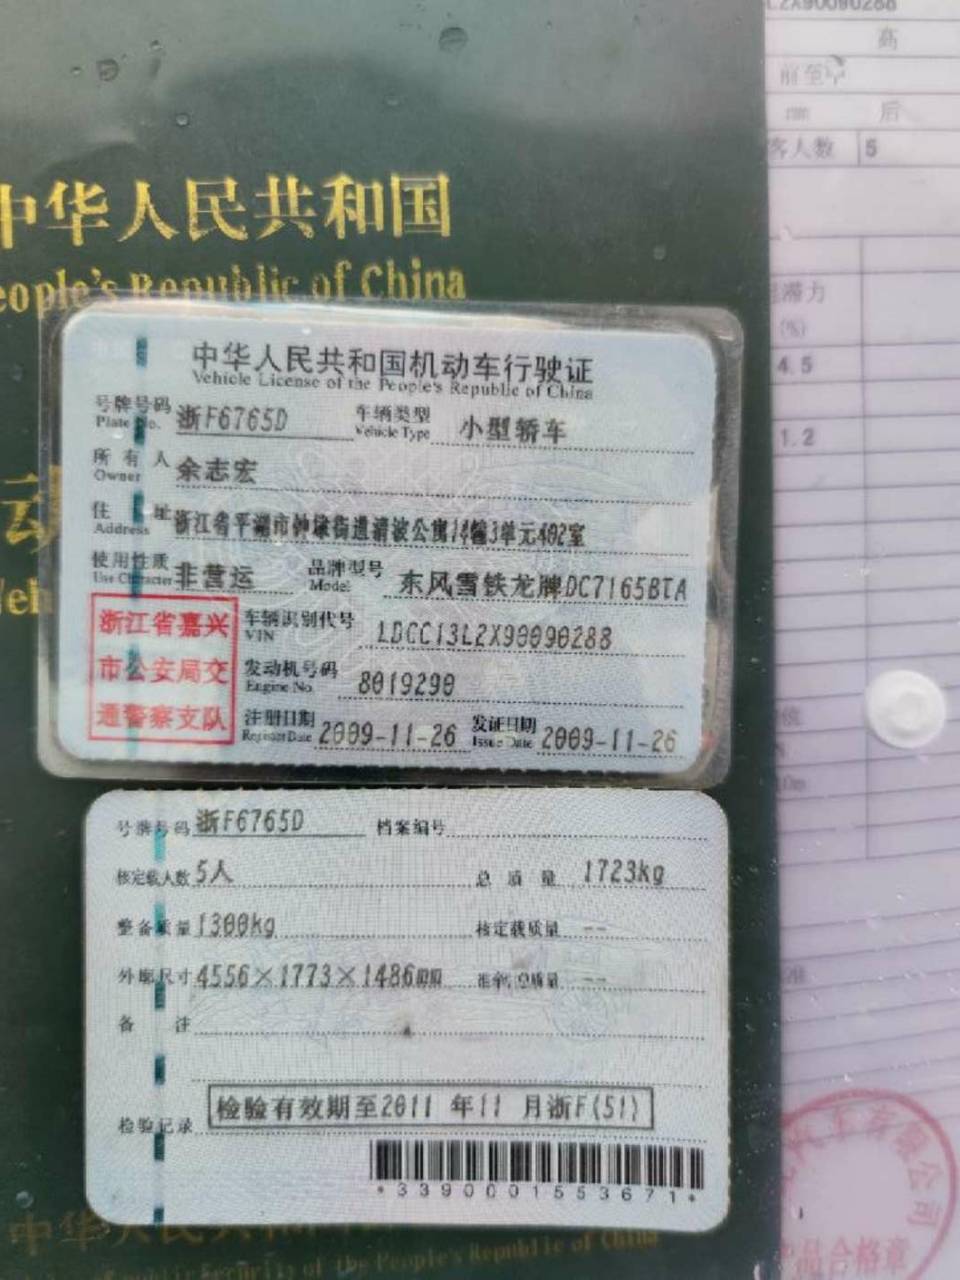 中华人民共和国
eople's Republic of China
中华人民共和国机动车行驶证
Vehicle License of the People's Republic of China
号牌号码 浙F6765D 车辆类型 小型轿车
Plate No. Vehicle Type
所有人 余志宏
Owner
住址 浙江省平湖市钟埭街道清波公寓14幢3单元402室
Address
使用性质 非营运 品牌型号 东风雪铁龙牌DC7165BTA
Use Character Model
浙江省嘉兴
市公安局交
通警察支队
车辆识别代号 LDCC13L2X90090288
VIN
发动机号码 8019290
Engine No.
注册日期 2009-11-26 发证日期 2009-11-26
Register Date Issue Date
号牌号码 浙F6765D 档案编号
核定载人数 5人 总质量 1723kg
整备质量 1300kg 核定载质量 --
外廓尺寸 4556×1773×1486mm 准牵总质量 --
备注
检验记录 检验有效期至2011年11月浙F(51)
*3390001553671*
中华人民共和国
L2X90090288
高
前至
mm 后
客人数 5
滞力
(%)
4.5
1.2
汽车有限公司
产品合格章